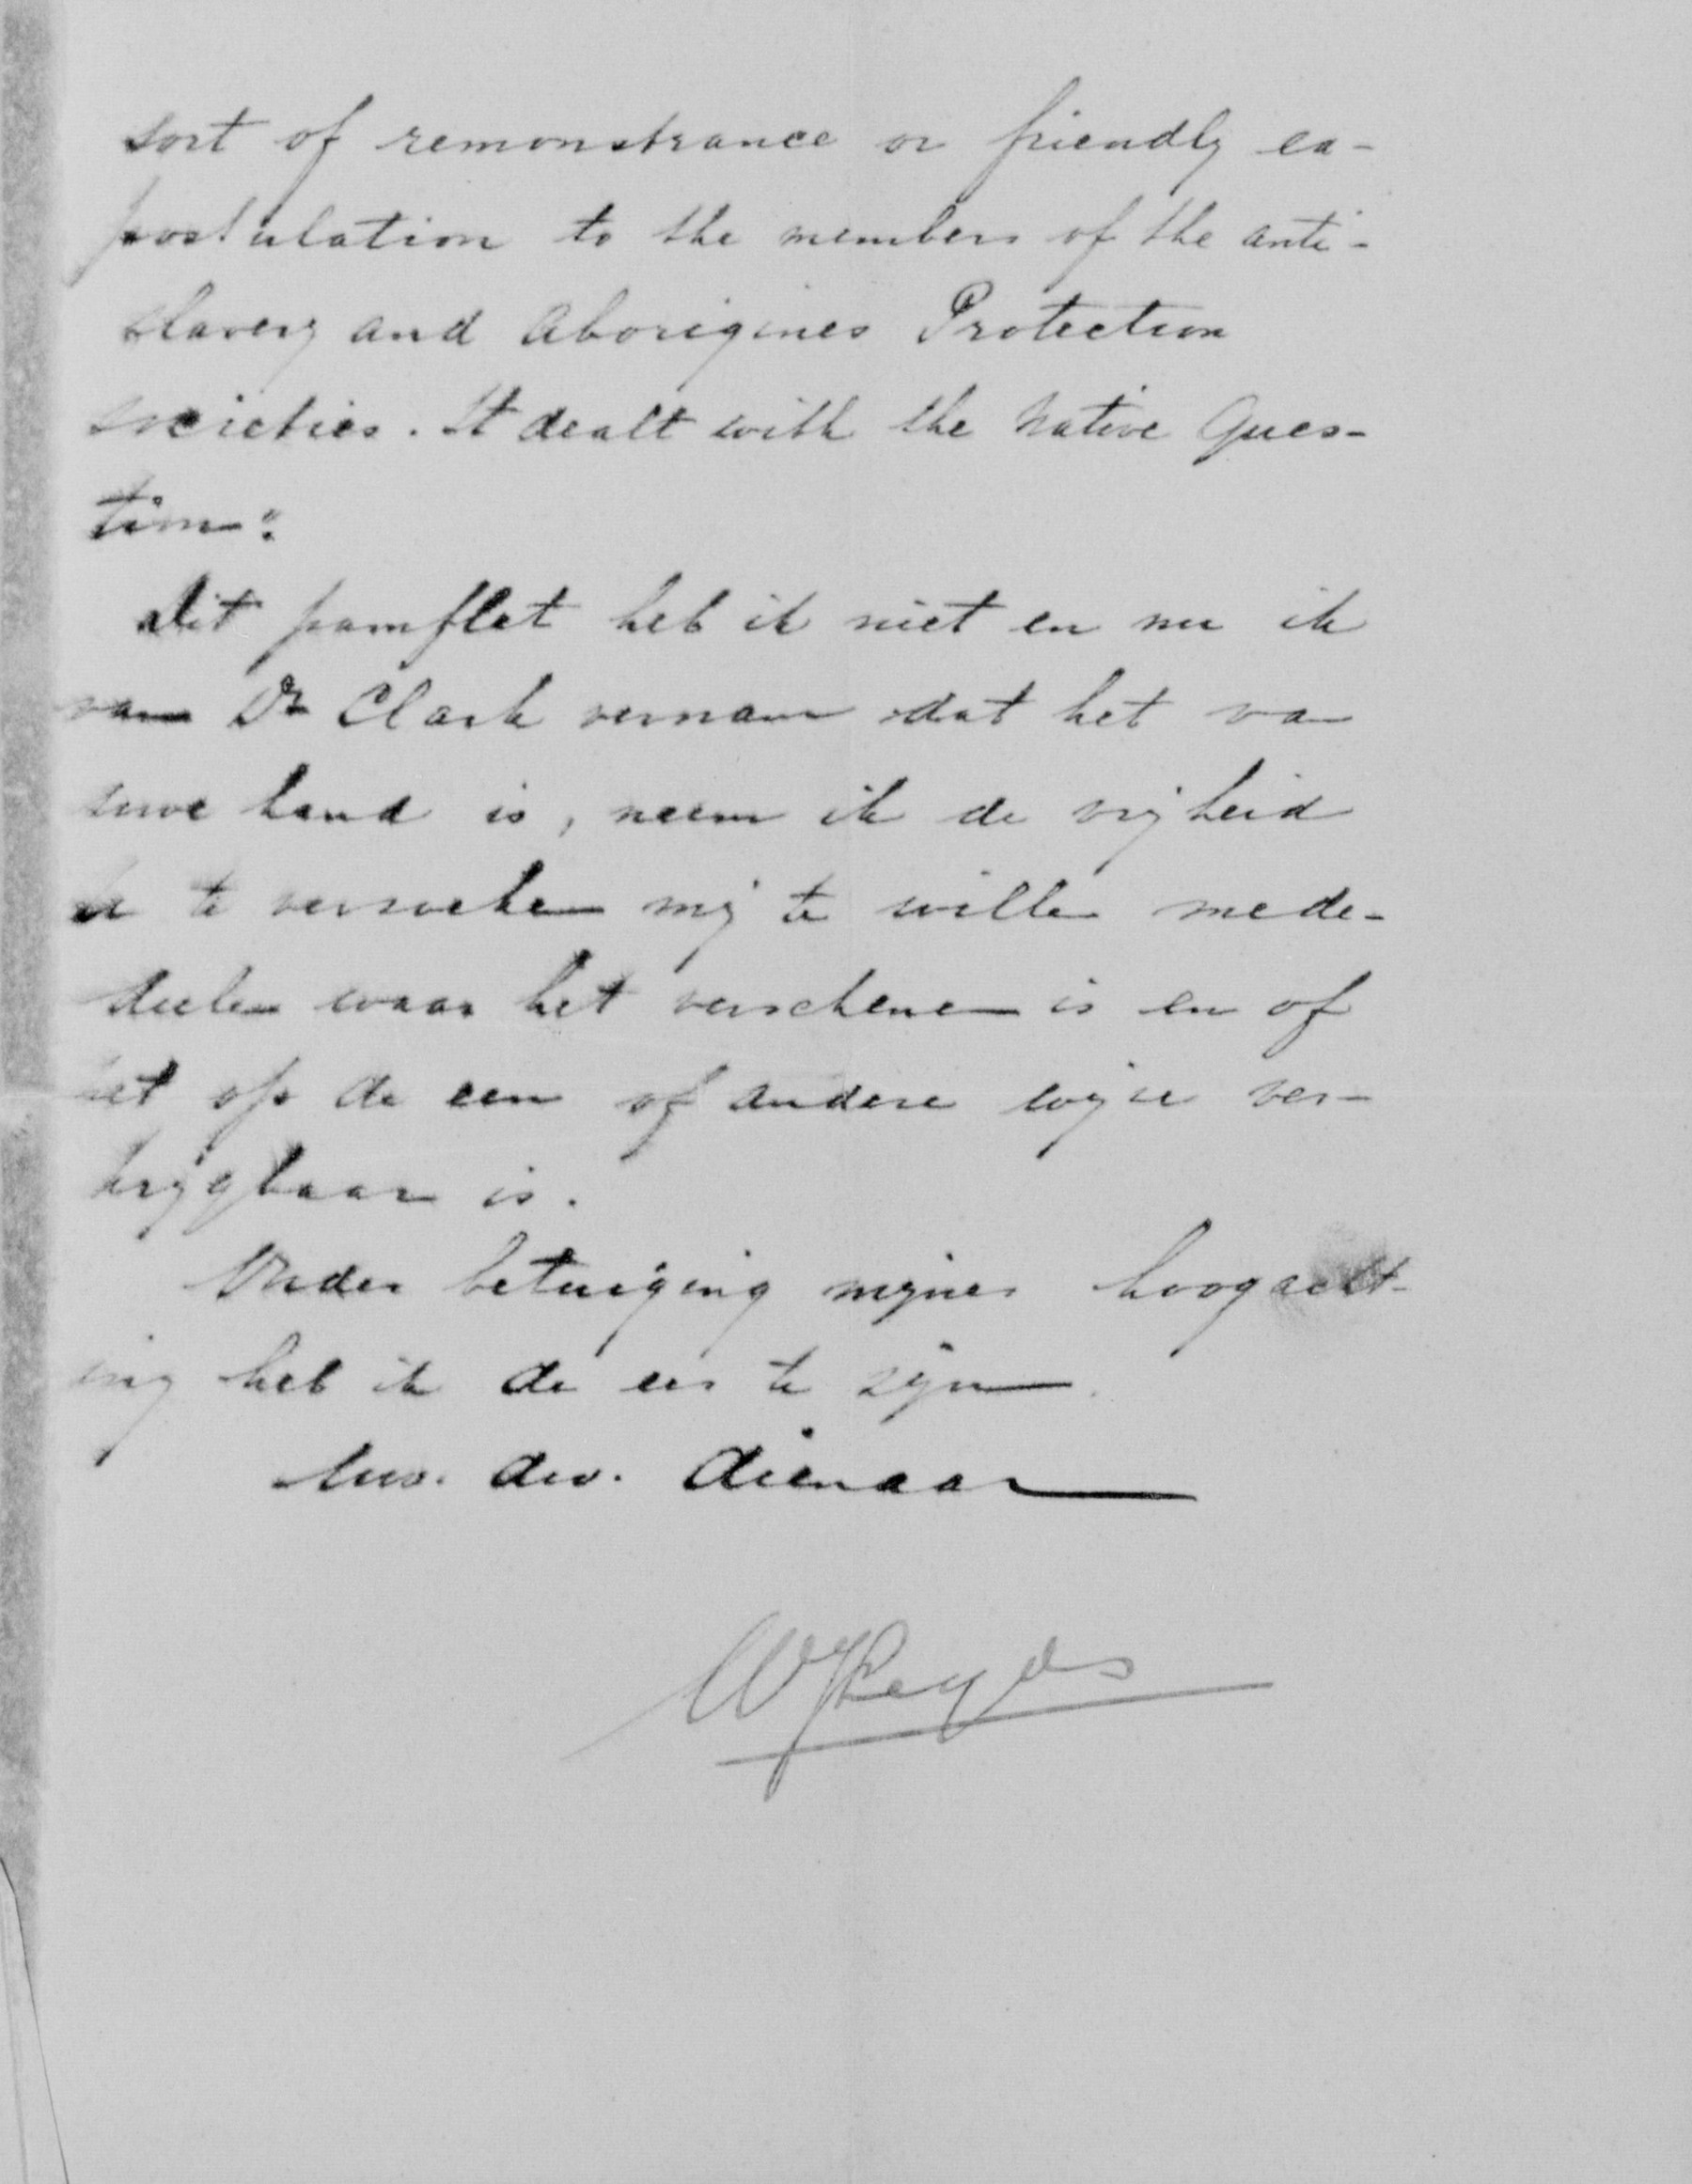 sort of remonstrance or friendly ex-
postulation to the members of the anti-
slavery and Aborigines Protection
societies. It dealt with the Native Ques-
tion:
Dit pamflet heb ik niet en nu ik
van Dr Clark vernam dat het van
uwe hand is, neem ik de vrijheid
u te verzoeken mij te willen mede-
deelen waar het verschenen is en of
het op de een of andere wijze ver-
krijgbaar is.
Onder betuiging mijner hoogacht-
ing heb ik de eer te zijn
Uw. dw. dienaar
WJLeyds